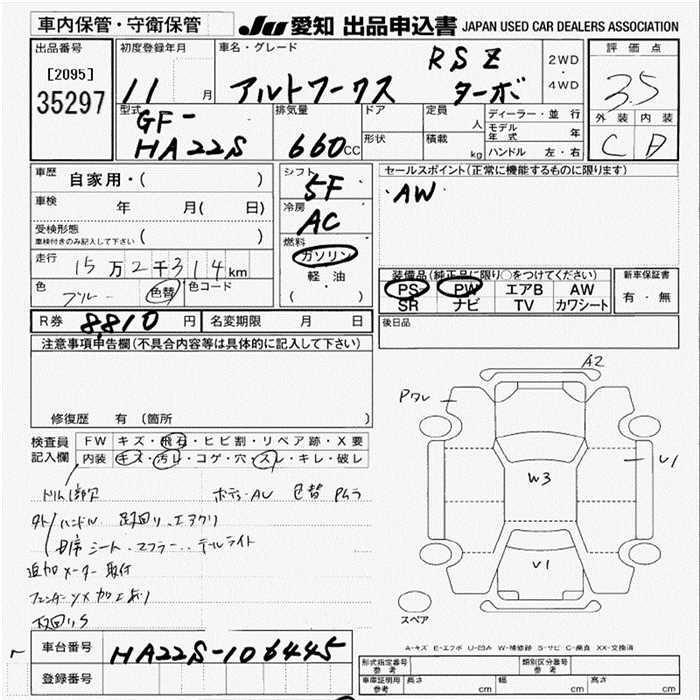 車内保管・守衛保管
JU 愛知 出品申込書 JAPAN USED CAR DEALERS ASSOCIATION
出品番号
[2095]
35297
初度登録年月
11 月
車名・グレード
アルトワークス
RSZ
ターボ
2WD
・
4WD
評価点
3.5
外装 内装
C D
型式
GF-
HA22S
排気量
660cc
ドア
形状
定員 人
積載 kg
ディーラー・並行
モデル年式 年
ハンドル 左・右
車歴 自家用・( )
車検 年 月( 日)
受検形態
車検付きのみ記入して下さい ( )
走行 15万2千314km
色 ブルー 色替 色コード
シフト
5F
冷房
AC
燃料
ガソリン
軽油
( )
セールスポイント(正常に機能するものに限ります)
・AW
装備品(純正品に限り○をつけてください)
PS PW エアB AW
SR ナビ TV カワシート
新車保証書
有・無
R券 8,810 円 名変期限 月 日
後日品
注意事項申告欄(不具合内容等は具体的に記入して下さい)
修復歴 有 (箇所
検査員記入欄
FW キズ・飛石・ヒビ割・リペア跡・X要
内装 キズ・汚レ・コゲ・穴・スレ・キレ・破レ
ボディAU 色替 Pムラ
外/ハンドル 足回り、エアクリ
シート、マフラー、テールライト
追加メーター取付
フェンダーツメ加工あり
A2
Pワレ
U1
W3
U1
スペア
A-キズ E-エクボ U-凹み W-補修跡 S-サビ C-腐食 XX-交換済
車台番号 HA22S-106445
登録番号
形式指定番号
参考
類別区分番号
参考
車庫証明用
参考
長さ cm 幅 cm 高さ cm